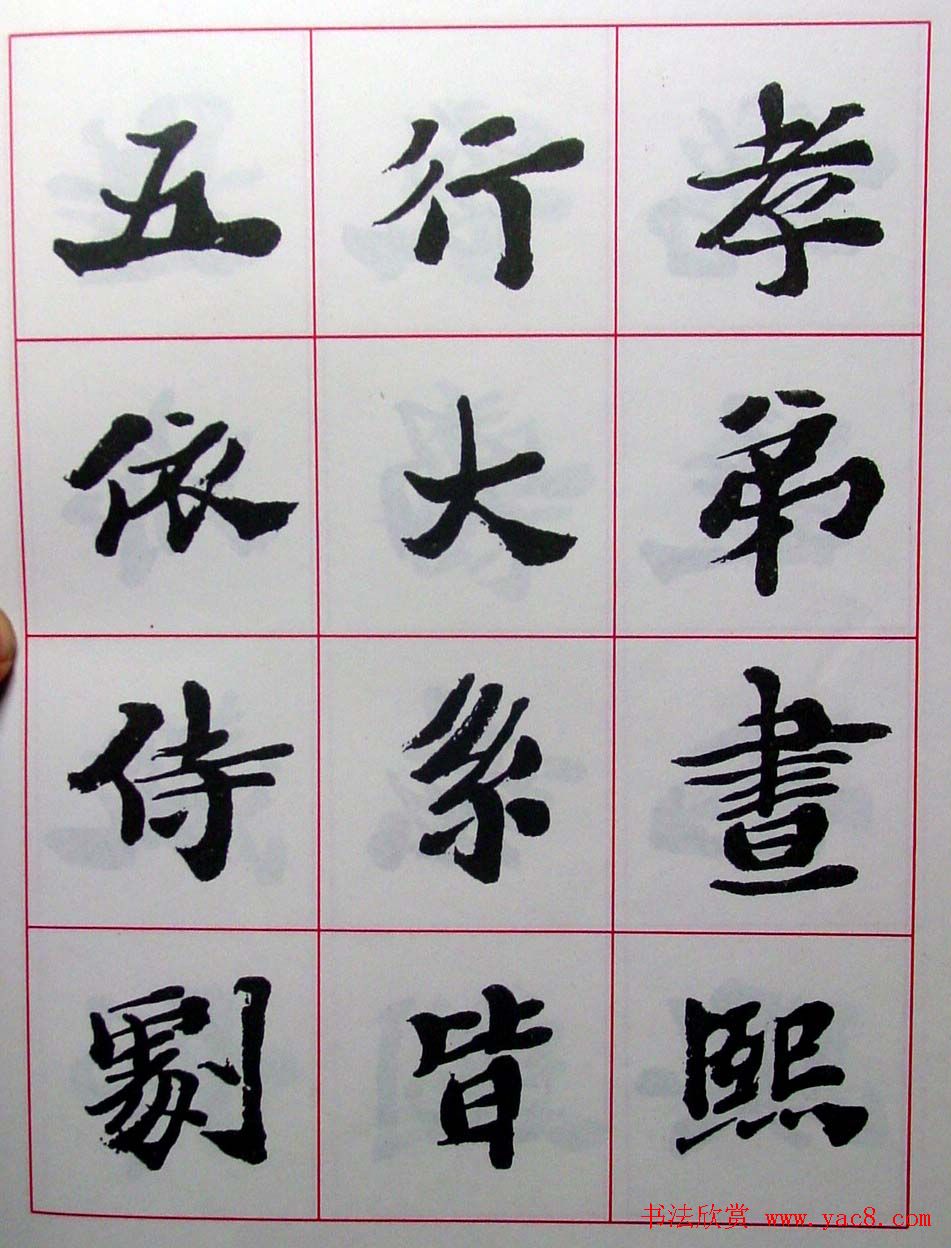 孝弟晝熙
行大系皆
五依侍劇
书法欣赏 www.yac8.com